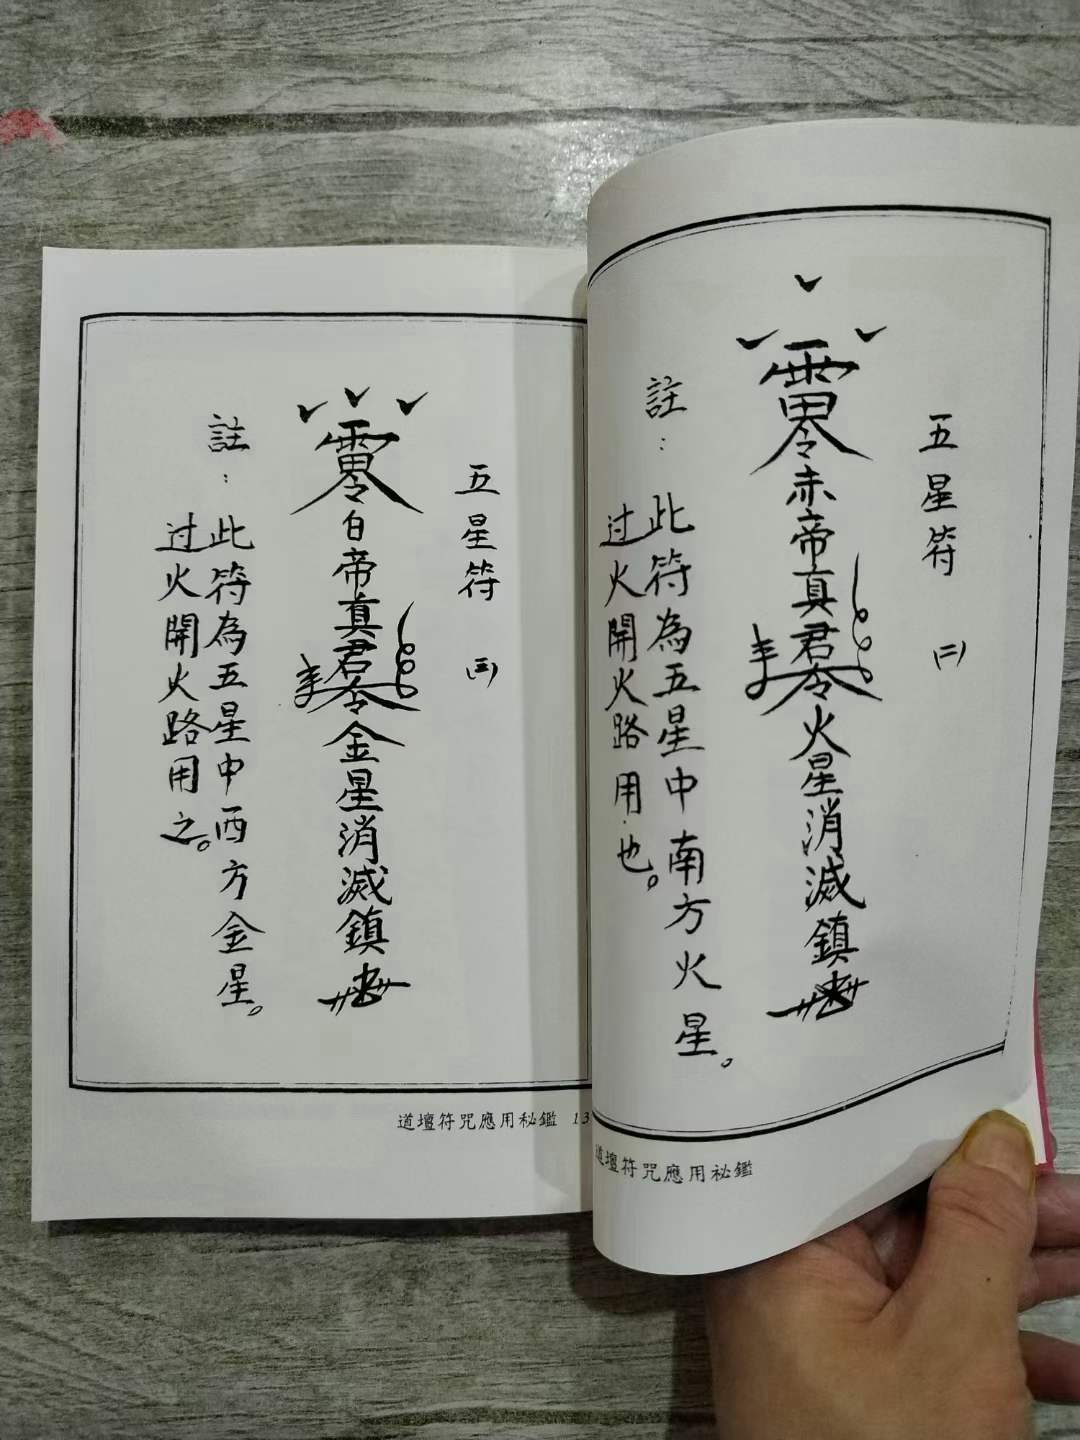 五星符 (二)
零赤帝真君令火星消滅鎮
註：此符為五星中南方火星。
过火開火路用也。
道壇符咒應用秘鑑
五星符 (三)
零白帝真君令金星消滅鎮
註：此符為五星中西方金星。
过火開火路用之。
道壇符咒應用秘鑑 13